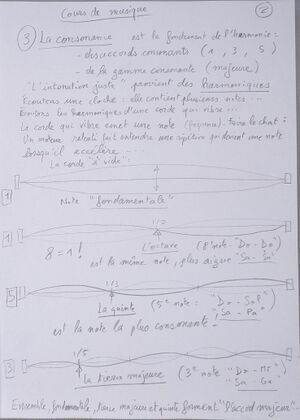 Cours de musique
②
③ La consonance est le fondement de l'harmonie :
- des accords consonants (1, 3, 5)
- de la gamme consonante (majeure)
"L'intonation juste" provient des harmoniques
Ecoutons une cloche : elle contient plusieurs notes ...
Ecoutons les harmoniques d'une corde qui vibre ...
La corde qui vibre émet une note (fréquence). Faire le chat :
Un moteur ralenti fait entendre une répétition qui devient une note
lorsqu'il accélère ...
La corde "à vide" :
1
Note "fondamentale"
1
1/2
8 = 1 !
L'octave (8e note - Do - Do)
est la même note, plus aigue "Sa - Sa"
5
1/3
La quinte (5e note : "Do - Sol"
"Sa - Pa"
est la note la plus consonante.
3
1/5
La tierce majeure (3e note "Do - Mi"
"Sa - Ga"
Ensemble, fondamentale, tierce majeure et quinte forment "l'accord majeur"